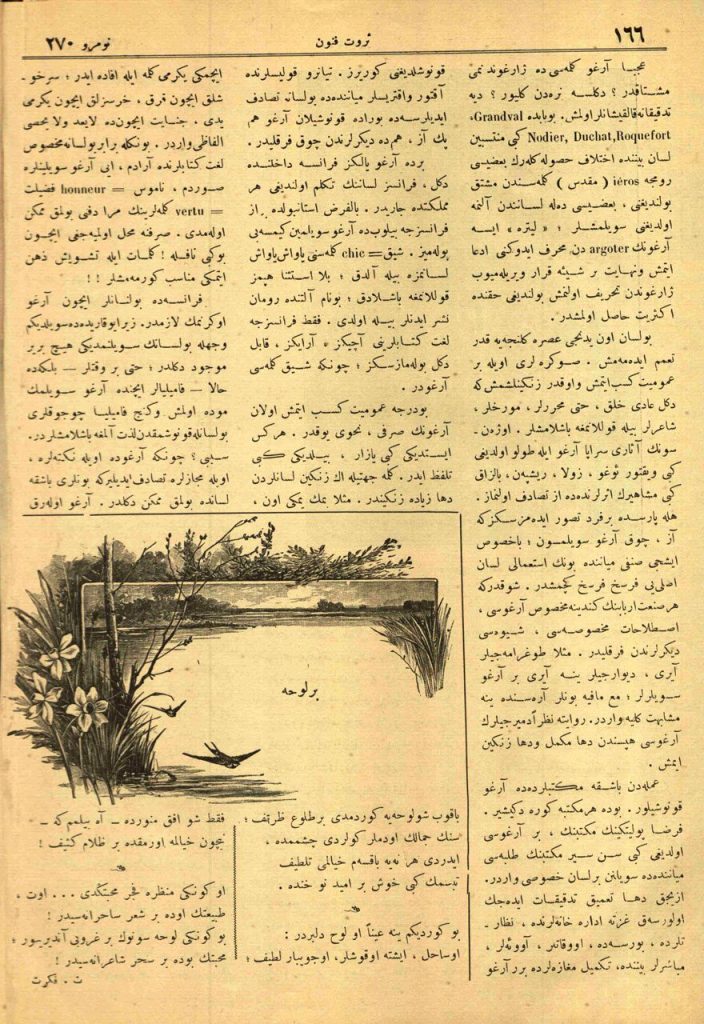 ١٦٦
ثروت فنون
نومرو ٢٧٠
عجبا آرغو كلمه‌سی ده ژارغوندنمی
مشتاقدر؟ دكلسه نره‌دن كلیور؟ دیه
تدقیقاته قالقیشانلر اولمش. بوبابده Grandval,
Nodier, Duchat, Roquefort كبی منتسبین
لسان بیننده اختلاف حصوله كله‌رك بعضیسی
رومجه iéros (مقدس) كلمه‌سندن مشتق
بولندیغنی، بعضیسی ده‌له لساندن آلنمه
اولدیغنی سویلمشلر؛ «لیتره» ایسه
آرغونك argoter دن محرف ایدوكنی ادعا
ایتمش ونهایت بر شیئه قرار ویریله‌میوب
ژارغوندن تحریف اولنمش بولندیغی حقنده
اكثریت حاصل اولمشدر.
بولسان اون یدنجی عصره كلنجه‌یه قدر
تعمم ایده‌مه‌مش. صوكره لری اویله بر
عمومیت كسب ایتمش واوقدر زنكینلشمش‌كه
دكل عادی خلق، حتی محررلر، مورخلر،
شاعرلر بیله قوللانمغه باشلامشلر. اوژه‌ن
سونك آثاری سراپا آرغو ایله طولو اولدیغی
كبی ویقتور هوغو، زولا، ریشپن، بالزاق
كبی مشاهیرك اثرلرنده‌ده آز تصادف اولنماز.
هله پارسده برفرد تصور ایده‌من سكز كه
آز، چوق آرغو سویلمسون؛ باخصوص
ایشجی صنفی میاننده بونك استعمالی لسان
اصلی‌یی فرسخ فرسخ كچمشدر. شوقدركه
هر صنعت اربابنك كندینه مخصوص آرغوسی،
اصطلاحات مخصوصه‌سی، شیوه‌سی
دیكرلرندن فرقلیدر. مثلا طوغرامه‌جیلر
آیری، دیوارجیلر ینه آیری بر آرغو
سویلرلر؛ مع مافیه بونلر آره‌سنده ینه
مشابهت كلیه واردر. روایته نظراً دمیرجیلرك
آرغوسی هپسندن دها مكمل ودها زنكین
ایمش.
عمله‌دن باشقه مكتبلرده‌ده آرغو
قونوشیلور. بوده هر مكتبه كوره دكیشیر.
فرضا پولیتكنیك مكتبنك، بر آرغوسی
اولدیغی كبی سن سیر مكتبنك طلبه‌سی
میاننده‌ده سویلنن بر لسان خصوصی واردر.
از‌بچق دها تعمیق تدقیقات ایده‌جك
اولورسه‌ق غزته اداره خانه‌لرنده، نظار‌ـ
تلرده، بورسه‌ده، اووقاتلر، آووئه‌لر،
مباشرلر بیننده، تكمیل مغازه‌لرده برر آرغو
قونوشلدیغنی كوریرز. تیاترو قولیسلرنده
آقتور واقتریسلر میاننده‌ده بولسانه تصادف
ایدیلرسه‌ده بوراده قونوشیلان آرغو هم
پك آز، هم‌ده دیكرلرندن چوق فرقلیدر.
برده آرغو یالكز فرانسه داخلنده
دكل، فرانسز لساننك تكلم اولندیغی هر
مملكتده جاریدر. بالفرض استانبولده بر آز
فرانسزجه بیلوب‌ده آرغو سویلمین كیمسه‌یی
بوله‌میز. شیق = chic كلمه‌سنی یاواش یاواش
لسانمزه بیله آلدق؛ بلا استثنا هپمز
قوللانمغه باشلادق؛ بونام آلتنده رومان
نشر ایدنلر بیله اولدی. فقط فرانسزجه
لغت كتابلرینی آچیكز ده آرایكز، قابل
دكل بوله‌مازسكز؛ چونكه شیق كلمه‌سی
آرغودر.
بودرجه عمومیت كسب ایتمش اولان
آرغونك صرفی، نحوی یوقدر. هركس
ایستدیكی كبی یازار، بیلدیكی كبی
تلفظ ایدر. كلمه جهتیله اك زنكین لسانلردن
دها زیاده زنكیندر. مثلا یمك یمكی اون،
ایچمكی یكرمی كلمه ایله افاده ایدر؛ سرخو‌ـ
شلق ایچون قرق، خرسزلق ایچون یكرمی
یدی، جنایت ایچون‌ده لایعد ولا یحصی
الفاظی واردر. بونكله برابر بولسانه مخصوص
لغت كتابلرنده آرادم، ایی آرغو سویلینلره
صوردم، ناموس = honneur فضیلت
= vertu كلمه‌لرینك مرادفی بولمق ممكن
اوله‌مدی. صرفنه محل اولیه‌جغی ایچون
بوكبی نافله! كلمات ایله تشویش ذهن
ایتمكی مناسب كورمه‌مشلر!!
فرانسه‌ده بولنانلر ایچون آرغو
اوكرنمك لازمدر. زیرا یوقاریده‌ده سویلدیكم
وجهله بولسانك سویلنمدیكی هیچ بر یر
موجود دكلدر؛ حتی بر وقتلر — بلكه‌ده
حالا — فامیلیالر ایچنده آرغو سویلمك
موده اولمش وكنج فامیلیا چوجوقلری
بولسانله قونوشمقدن لذت آلمغه باشلامشلردر.
سببی؟ چونكه آرغوده اویله نكته‌لره،
اویله مجازلره تصادف ایدیلیركه بونلری باشقه
لسانده بولمق ممكن دكلدر. آرغو اوله‌رق
برلوحه
باقوب شو لوحه‌یه كوردمدی بر طلوع ظریف؛
سنك جمالك اودملر كولردی چشممده،
ایدردی هر نه‌یه باقسه‌م خیالمی تلطیف
تبسمك كبی خوش بر امید نو خنده.
بو كوردیكم ینه عیناً او لوح دلبردر:
اوساحل، ایشته اوقوشلر، اوجویبار لطیف؛
فقط شو افق منورده — آه بیلمم كه —
نیچون خیالمه اورمقده بر ظلام كثیف!
او كونكی منظره فجر محبتكدی... اوت،
طبیعتك اوده بر شعر ساحرانه‌سیدر!
بو كونكی لوحه سونوك بر غروبی آندیریور؛
محبتك بوده بر سحر شاعرانه‌سیدر!
ت. فكرت